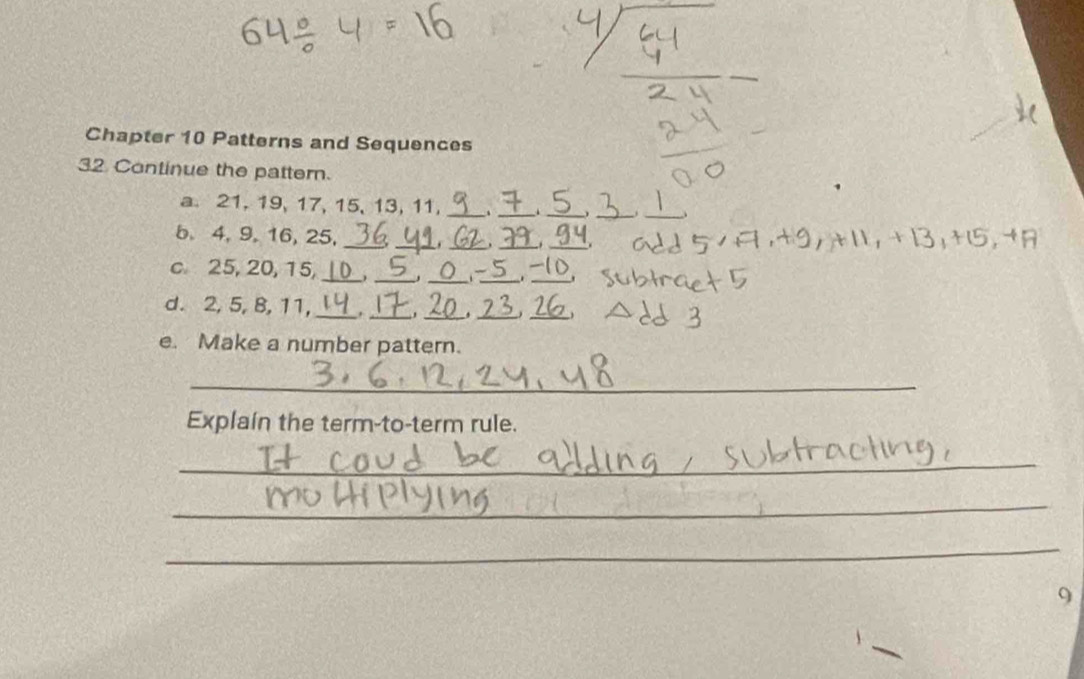 64 ÷ 4 = 16
4 64
4 -
24
24 -
00
Chapter 10 Patterns and Sequences
32. Continue the pattern.
a. 21, 19, 17, 15, 13, 11, 9, 7, 5, 3, 1,
b. 4, 9, 16, 25, 36, 49, 62, 79, 94, add 5, +7, +9, +11, +13, +15, +17
c. 25, 20, 15, 10, 5, 0, -5, -10, subtract 5
d. 2, 5, 8, 11, 14, 17, 20, 23, 26, Add 3
e. Make a number pattern.
3, 6, 12, 24, 48
Explain the term-to-term rule.
It coud be adding, subtracting,
multiplying
9